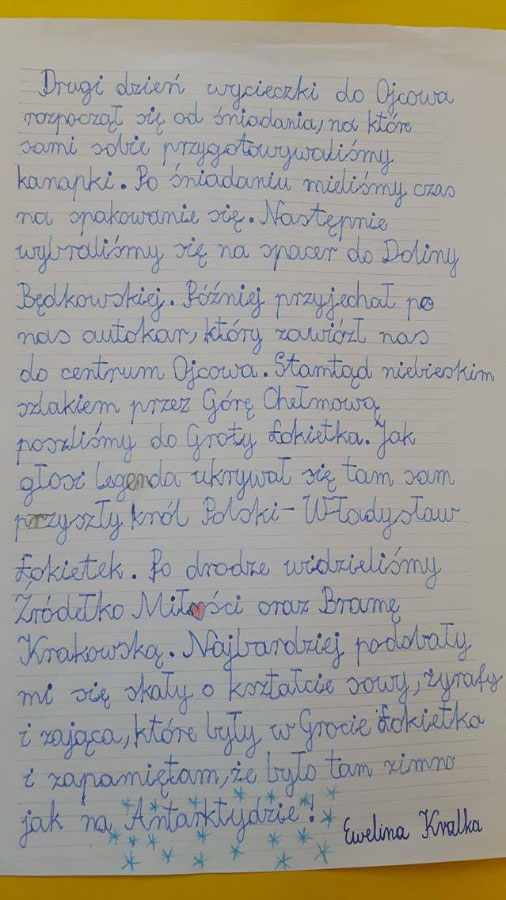 Drugi dzień wycieczki do Ojcowa
rozpoczął się od śniadania, na które
sami sobie przygotowywaliśmy
kanapki. Po śniadaniu mieliśmy czas
na spakowanie się. Następnie
wybraliśmy się na spacer do Doliny
Będkowskiej. Później przyjechał po
nas autokar, który zawiózł nas
do centrum Ojcowa. Stamtąd niebieskim
szlakiem przez Górę Chełmową
poszliśmy do Groty Łokietka. Jak
głosi legenda ukrywał się tam sam
przyszły król Polski - Władysław
Łokietek. Po drodze widzieliśmy
Źródełko Miłości oraz Bramę
Krakowską. Najbardziej podobały
mi się skały o kształcie sowy, żyrafy
i zająca, które były w Grocie Łokietka
i zapamiętam, że było tam zimno
jak na Antarktydzie!
Ewelina Kralka